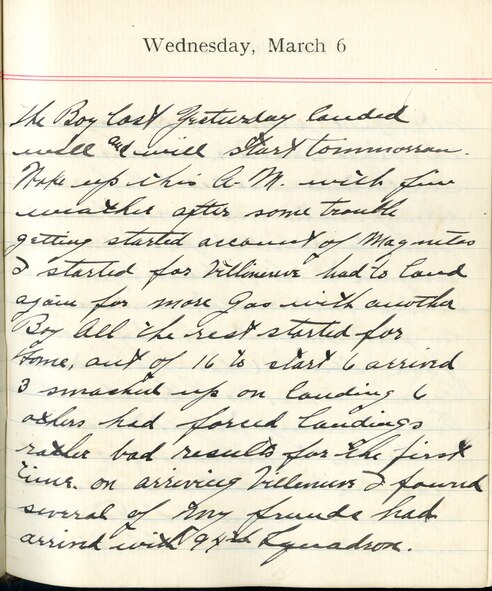 Wednesday, March 6
the Boy lost Yesturday landed
well and will start tommorrow.
Woke up this A.M. with fine
weather after some trouble
getting started account of Magnetos
I started for Villineuve had to land
again for more Gas with another
Boy All the rest started for
Home, out of 16 to start 6 arrived
3 smashed up on landing 6
others had forced landings
rather bad results for the first
time. on arriving Villenuve I found
several of my friends had
arrived with 94th Squadron.